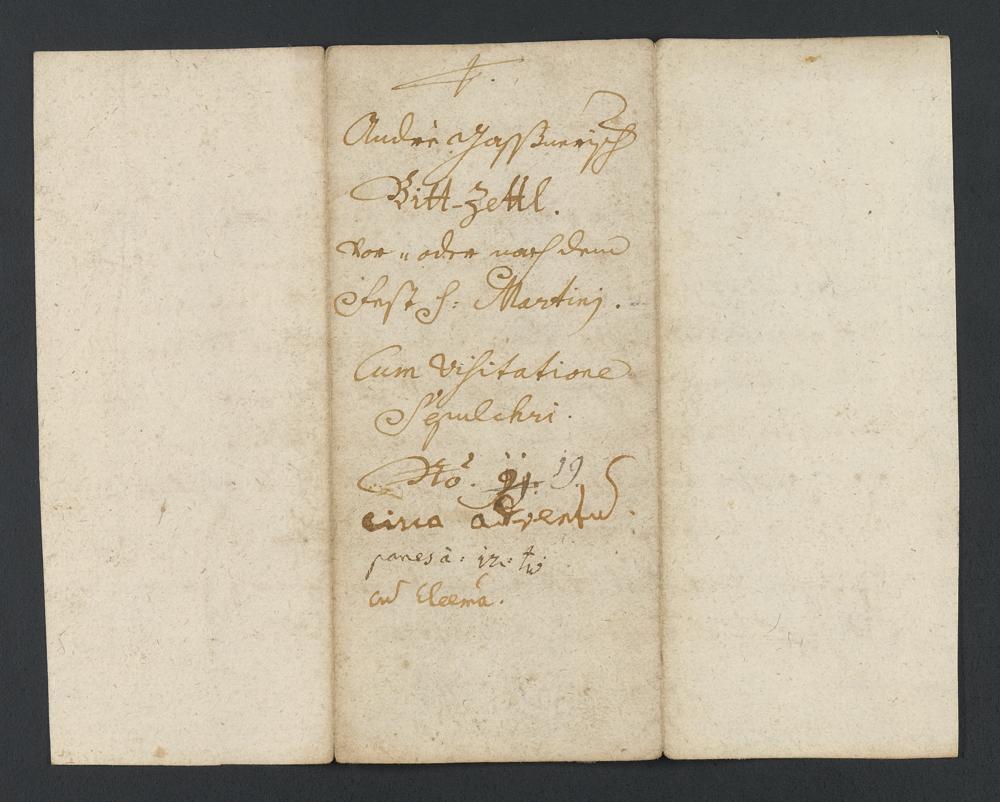 Andrè Gassnerisch
Bitt-Zettl.
vor „ oder nach dem
Fest S: Martinj.
Cum Visitatione
Sepulchri.
No. 19.
circa adventu.
panes à: 12:
Eleema.